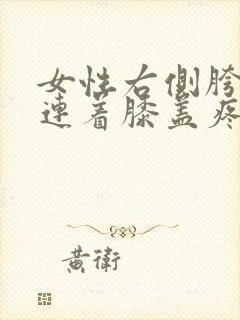 女性右側胯
連着膝盖疼
黄衛